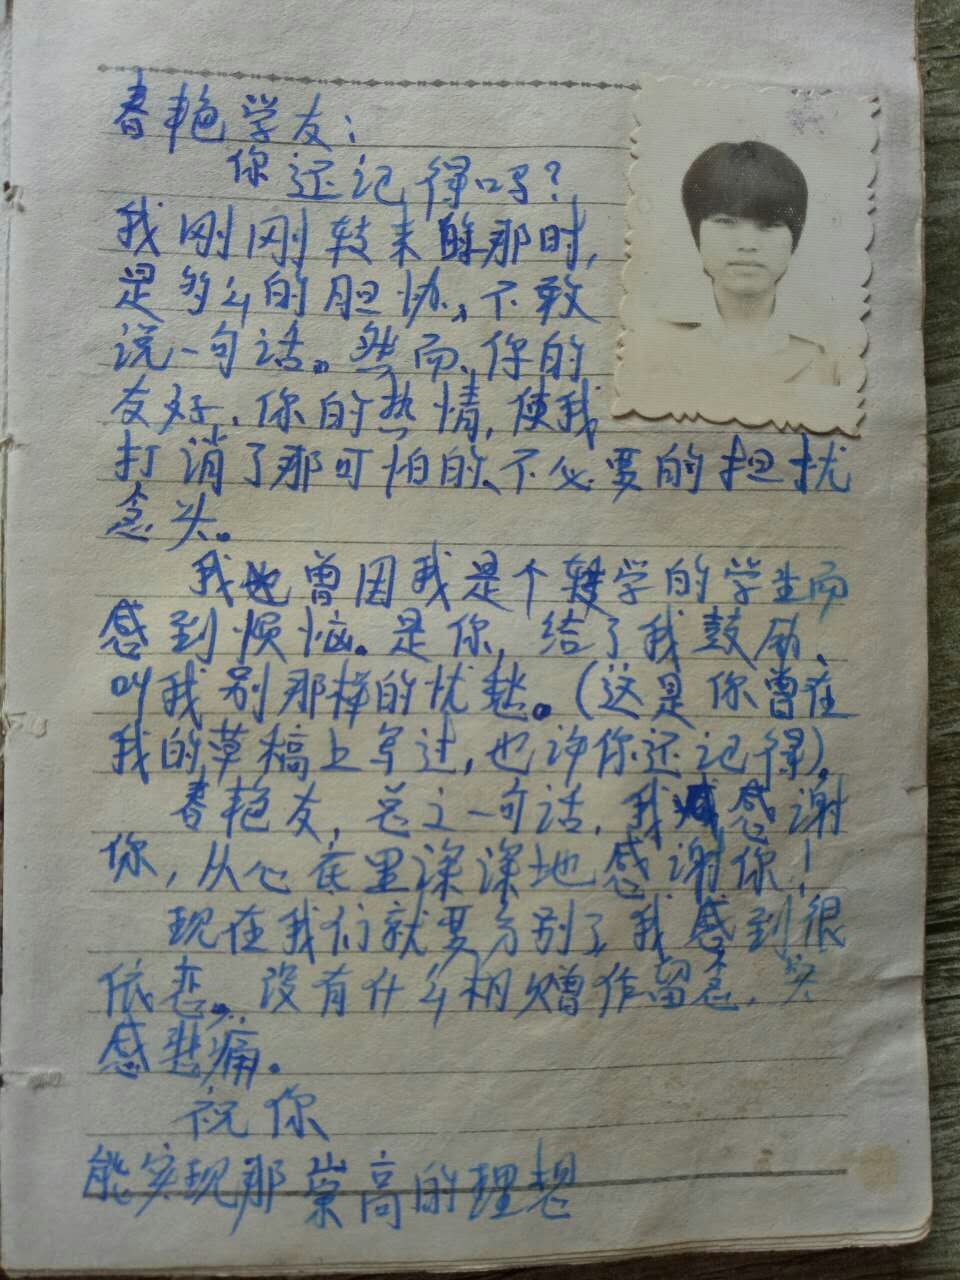 春艳学友：
你还记得吗？
我刚刚转来的那时，
是多么的胆怯、不敢
说一句话。然而、你的
友好、你的热情，使我
打消了那可怕的、不必要的担扰
念头。
我也曾因我是个转学的学生而
感到烦恼。是你，给了我鼓励、
叫我别那样的忧愁。（这是你曾在
我的草稿上写过，也许你还记得）。
春艳友，总之一句话，我感谢
你，从心底里深深地感谢你！
现在我们就要分别了，我感到很
依恋。没有什么相赠作留念，实
感悲痛。
祝你
能实现那崇高的理想